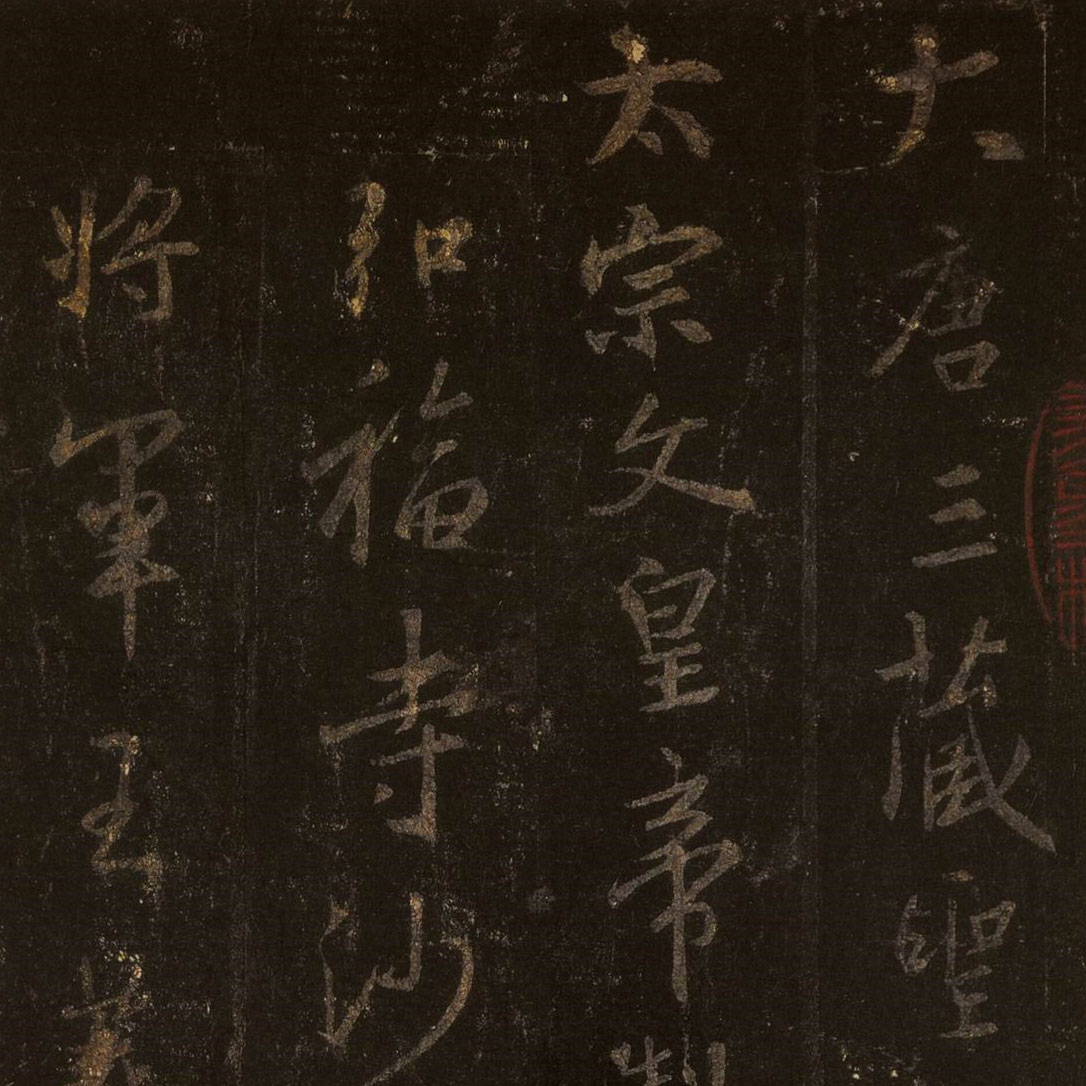 大唐三藏聖
太宗文皇帝製
弘福寺沙
將軍王